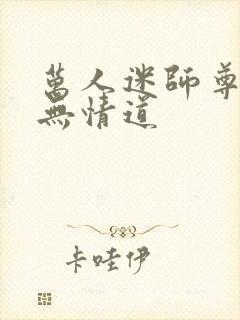 萬人迷師尊
無情道
卡哇伊